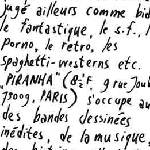 jugé ailleurs comme bid
le fantastique, le s.f., l
porno, le rétro, les
spaghetti-westerns etc.
"PIRANHA" (8½F. 9 rue
75009, PARIS) s'occupe au
des bandes dessinées
inédites, de la musique,